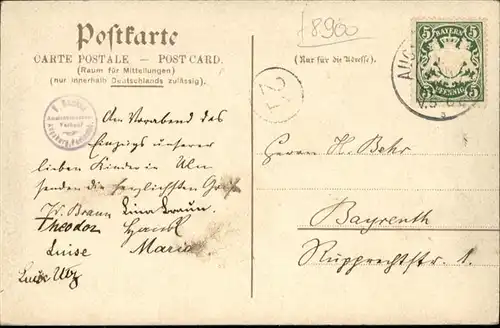 Postkarte
CARTE POSTALE — POST CARD.
(Raum für Mitteilungen)
(nur innerhalb Deutschlands zulässig).
8960
(Nur für die Adresse).
5 BAYERN 5
5 PFENNIG 5
AUG
Augsburg
Am Vorabend des
Einzugs unserer
lieben Kinder in Ulm
senden die herzlichsten Grüße
Fr. Braun Lina Braun.
Theodor Haubl
Luise Maria
Luise Utz
Herrn H. Behr
Bayreuth
Rupprechtstr. 1.